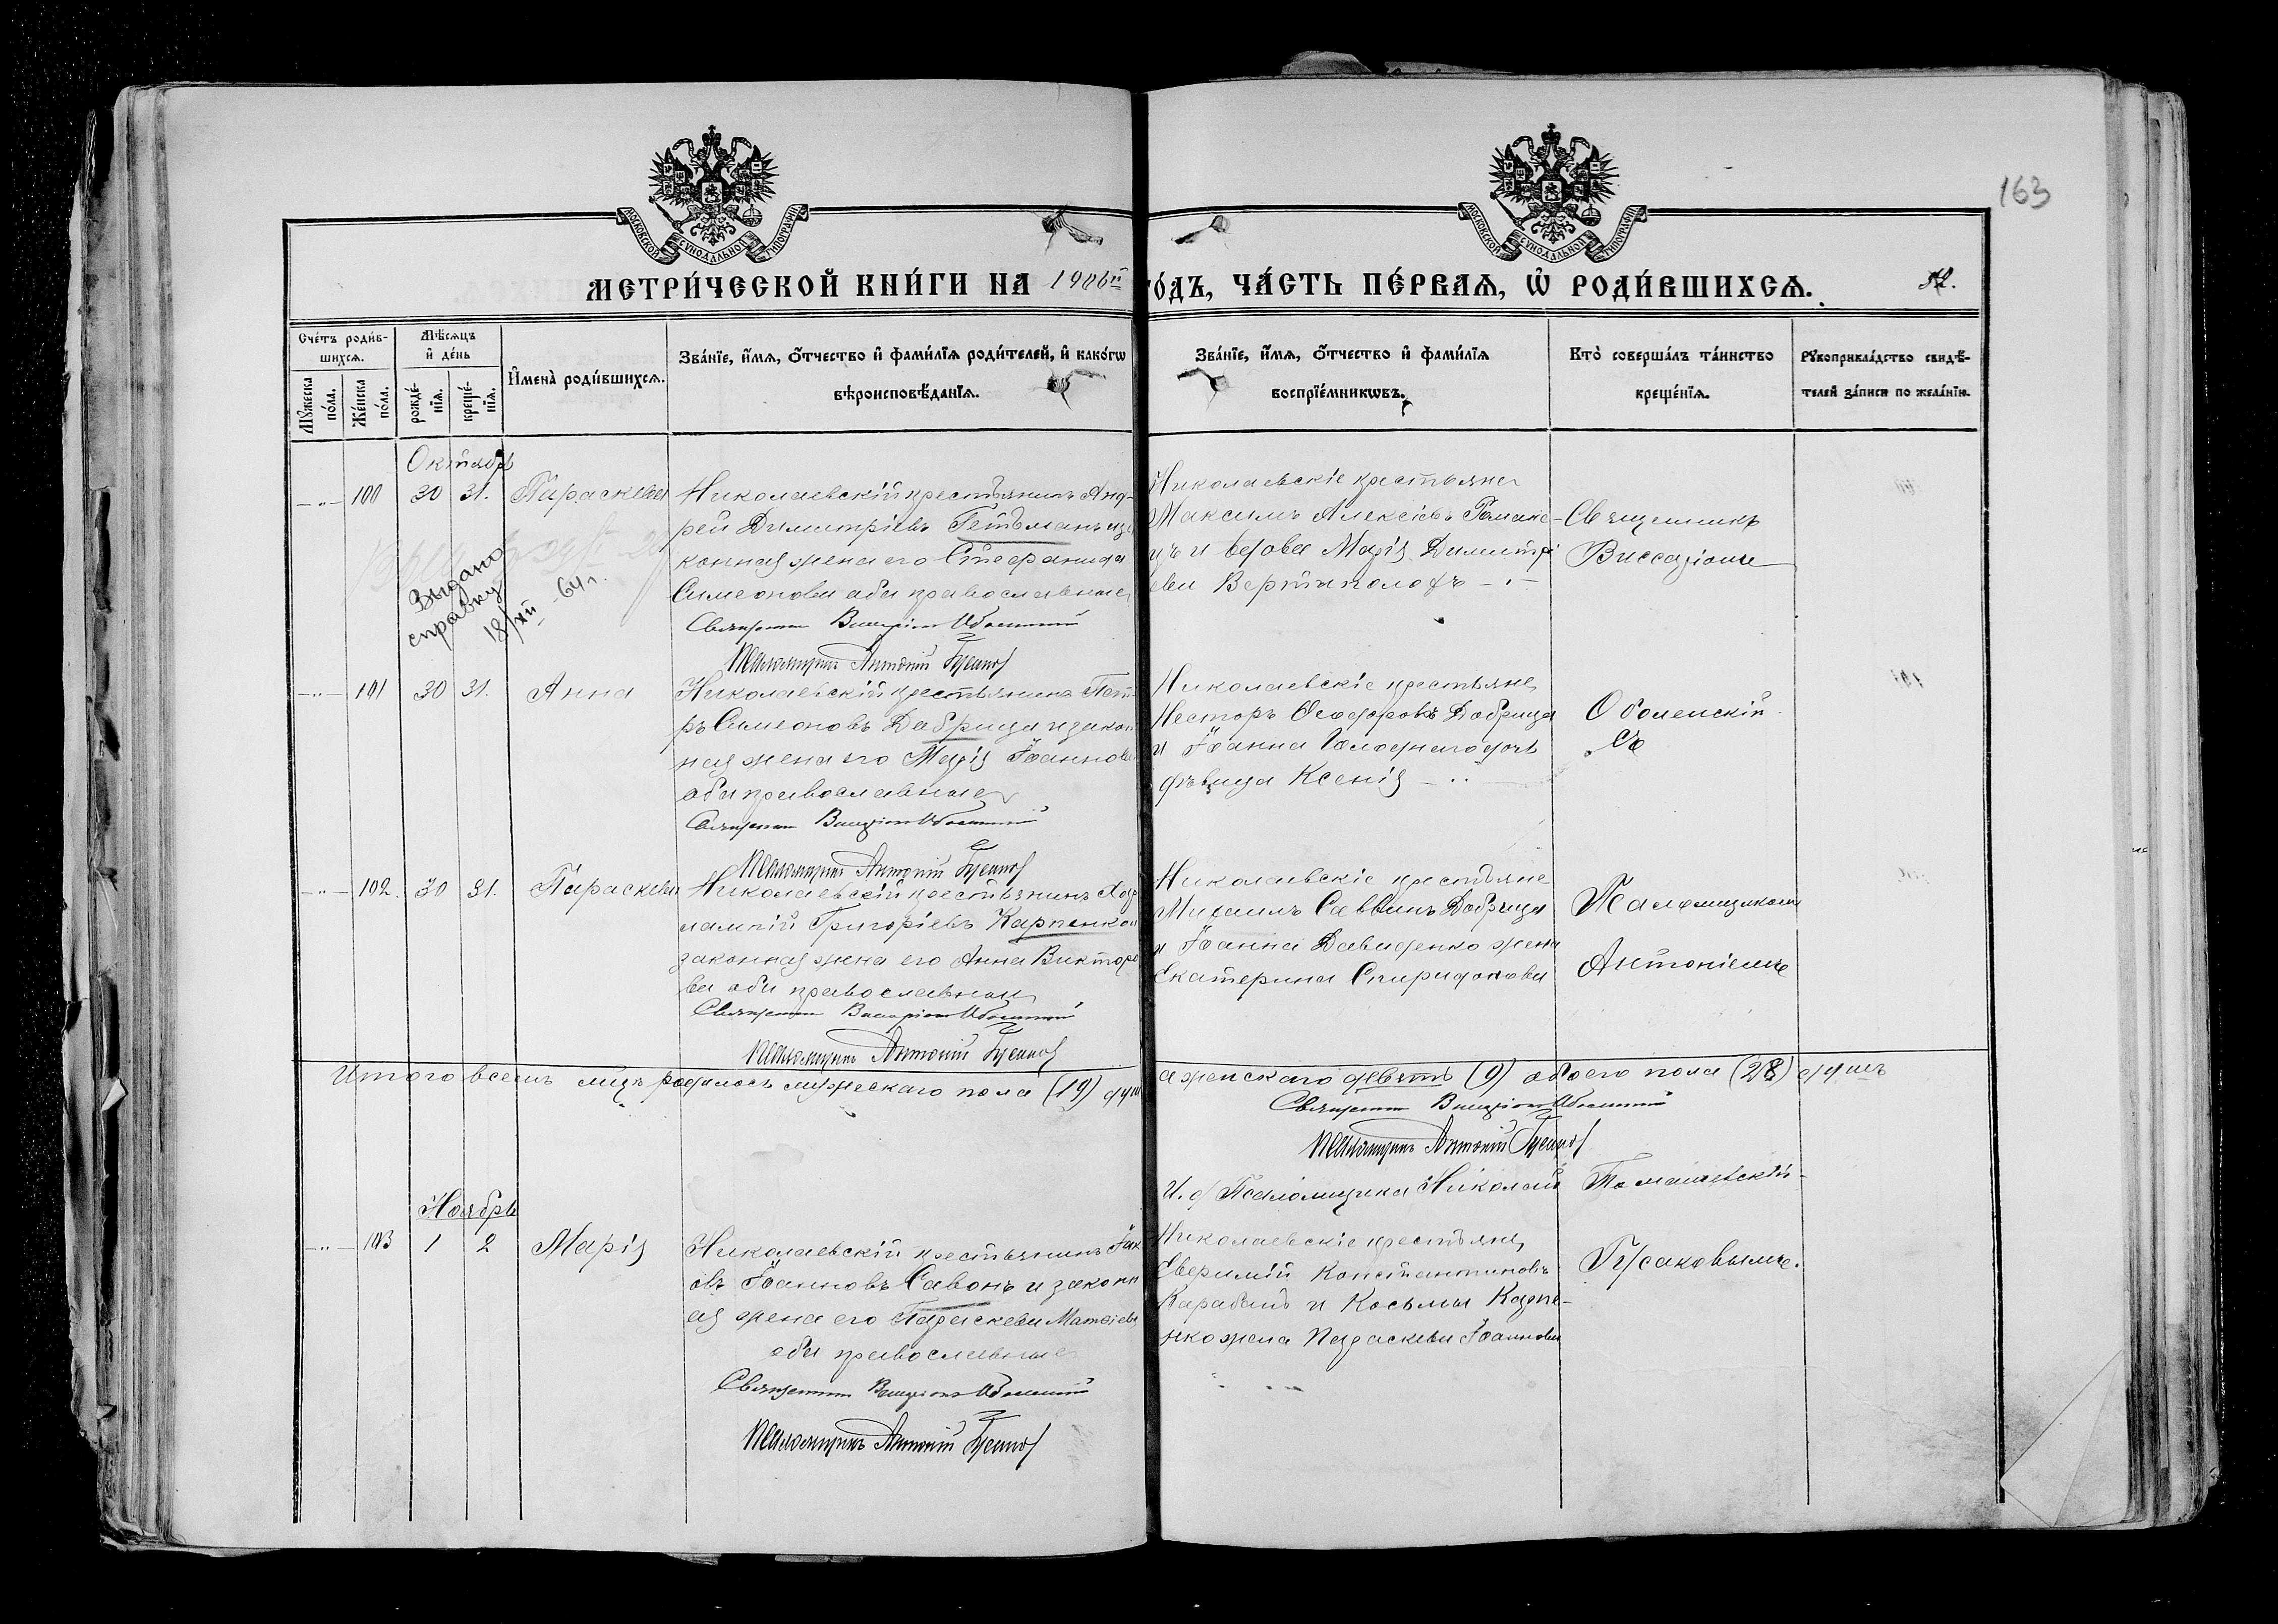 163
МОСКОВСКОЙ СѴНОДАЛЬНОЙ ТИПОГРАФІИ
МОСКОВСКОЙ СѴНОДАЛЬНОЙ ТИПОГРАФІИ
МЕТРИ́ЧЕСКОЙ КНИ́ГИ НА 1906й
ГО́ДЪ, ЧА́СТЬ ПЕ́РВАѦ, Ѽ РОДИ́ВШИХСѦ.
Сче́тъ роди́в-
шихсѧ.
Мꙋ́жеска по́ла.
Же́нска по́ла.
Мѣ́сѧцъ и де́нь
рожде́-нїѧ.
креще́-нїѧ.
И҆мена̀ роди́вшихсѧ.
Зва́нїе, и҆́мѧ, ѻ҆́тчество и҆ фами́лїѧ роди́телей, и҆ како́гѡ
вѣроисповѣ́данїѧ.
Зва́нїе, и҆́мѧ, ѻ҆́тчество и҆ фами́лїѧ
воспрїе́мникѡвъ.
Кто̀ соверша́лъ та́инство
креще́нїѧ.
Рꙋкоприкла́дство свидѣ́-
телей за́писи по жела́нїю.
Октябрь
100 30 31. Параскева
Николаевскій крестьянинъ Анд-
рей Димитріевъ Гетьманъ и за
конная жена его Стефанида
Симеонова оба православные
Священникъ Виссаріонъ Оболенскій
Псаломщикъ Антоній Гусаков
Николаевскіе крестьяне
Максимъ Алексіевъ
и вдова Марія Димитрі
ева Вертыполохъ
Священникъ
Виссаріонъ
Выдано
справку
18/XII -64 г.
101 30 31. Анна
Николаевскій крестьянинъ Пет
ръ Симеоновъ Добрица и закон
ная жена его Марія Іоаннова
оба православные
Священникъ Виссаріонъ Оболенскій
Псаломщикъ Антоній Гусаков
Николаевскіе крестьяне
Несторъ Ѳеодоровъ Добрица
и Іоанна Голоднаго дочь
дѣвица Ксенія
Оболенскій
съ
102. 30 31. Параскева
Николаевскій крестьянинъ Хар
лампій Григоріевъ Карпенко и
законная жена его Анна Викторо
ва оба православные
Священникъ Виссаріонъ Оболенскій
Псаломщикъ Антоній Гусаков
Николаевскіе крестьяне
Михаилъ Саввинъ Добрица
и Іоанна Давиденко жена
Екатерина Спиридонова
Псаломщикомъ
Антоніемъ
Итого всемъ родилось мужескаго пола (19) душ
а женскаго девять (9) обоего пола (28) душъ
Священникъ Виссаріонъ Оболенскій
Псаломщикъ Антоній Гусаков
И. д. Псаломщика Николай Томашевскій
Ноябрь
103 1 2 Марія
Николаевскій крестьянинъ Іак
овъ Іоанновъ Савонъ и законн
ая жена его Параскева Матѳіева
оба православные
Священникъ Виссаріонъ Оболенскій
Псаломщикъ Антоній Гусаков
Николаевскіе крестьяне
Евфимій Константиновъ
Карабанъ и Косьмы Карпе-
нко жена Параскева Іоаннова
Гусаковымъ.